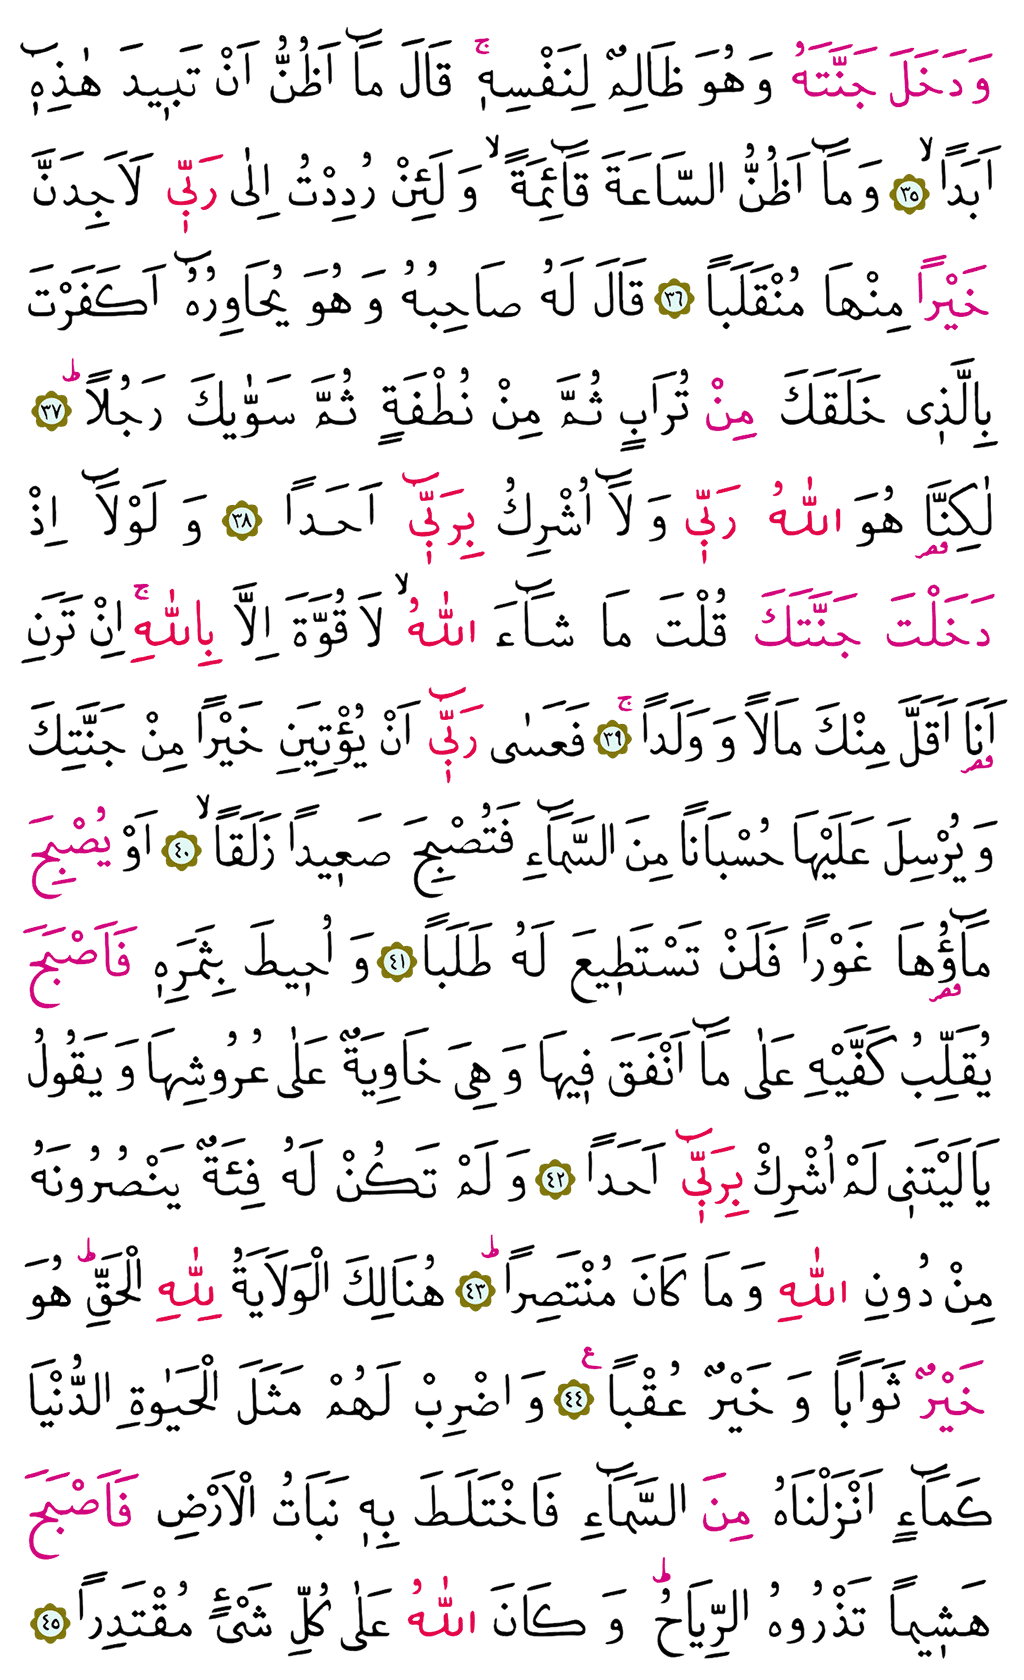 وَدَخَلَ جَنَّتَهُ وَهُوَ ظَالِمٌ لِنَفْسِهٖۚ قَالَ مَٓا اَظُنُّ اَنْ تَبٖيدَ هٰذِهٖٓ
اَبَداًۙ ﴿٣٥﴾ وَمَٓا اَظُنُّ السَّاعَةَ قَٓائِمَةًۙ وَلَئِنْ رُدِدْتُ اِلٰى رَبّٖى لَاَجِدَنَّ
خَيْراً مِنْهَا مُنْقَلَباً ﴿٣٦﴾ قَالَ لَهُ صَاحِبُهُ وَهُوَ يُحَاوِرُهُٓ اَكَفَرْتَ
بِالَّذٖى خَلَقَكَ مِنْ تُرَابٍ ثُمَّ مِنْ نُطْفَةٍ ثُمَّ سَوّٰيكَ رَجُلاًؕ ﴿٣٧﴾
لٰكِنَّا۬ هُوَ اللّٰهُ رَبّٖى وَلَٓا اُشْرِكُ بِرَبّٖٓى اَحَداً ﴿٣٨﴾ وَلَوْلَٓا اِذْ
دَخَلْتَ جَنَّتَكَ قُلْتَ مَا شَٓاءَ اللّٰهُۙ لَا قُوَّةَ اِلَّا بِاللّٰهِۚ اِنْ تَرَنِ
اَنَا۬ اَقَلَّ مِنْكَ مَالاً وَوَلَداًۚ ﴿٣٩﴾ فَعَسٰى رَبّٖٓى اَنْ يُؤْتِيَنِ خَيْراً مِنْ جَنَّتِكَ
وَيُرْسِلَ عَلَيْهَا حُسْبَاناً مِنَ السَّمَٓاءِ فَتُصْبِحَ صَعٖيداً زَلَقاًۙ ﴿٤٠﴾ اَوْ يُصْبِحَ
مَٓاؤُ۬هَا غَوْراً فَلَنْ تَسْتَطٖيعَ لَهُ طَلَباً ﴿٤١﴾ وَاُحٖيطَ بِثَمَرِهٖ فَاَصْبَحَ
يُقَلِّبُ كَفَّيْهِ عَلٰى مَٓا اَنْفَقَ فٖيهَا وَهِىَ خَاوِيَةٌ عَلٰى عُرُوشِهَا وَيَقُولُ
يَالَيْتَنٖى لَمْ اُشْرِكْ بِرَبّٖٓى اَحَداً ﴿٤٢﴾ وَلَمْ تَكُنْ لَهُ فِئَةٌ يَنْصُرُونَهُ
مِنْ دُونِ اللّٰهِ وَمَا كَانَ مُنْتَصِراًؕ ﴿٤٣﴾ هُنَالِكَ الْوَلَايَةُ لِلّٰهِ الْحَقِّؕ هُوَ
خَيْرٌ ثَوَاباً وَخَيْرٌ عُقْباًࣖ ﴿٤٤﴾ وَاضْرِبْ لَهُمْ مَثَلَ الْحَيٰوةِ الدُّنْيَا
كَمَٓاءٍ اَنْزَلْنَاهُ مِنَ السَّمَٓاءِ فَاخْتَلَطَ بِهٖ نَبَاتُ الْاَرْضِ فَاَصْبَحَ
هَشٖيماً تَذْرُوهُ الرِّيَاحُؕ وَكَانَ اللّٰهُ عَلٰى كُلِّ شَىْءٍ مُقْتَدِراً ﴿٤٥﴾